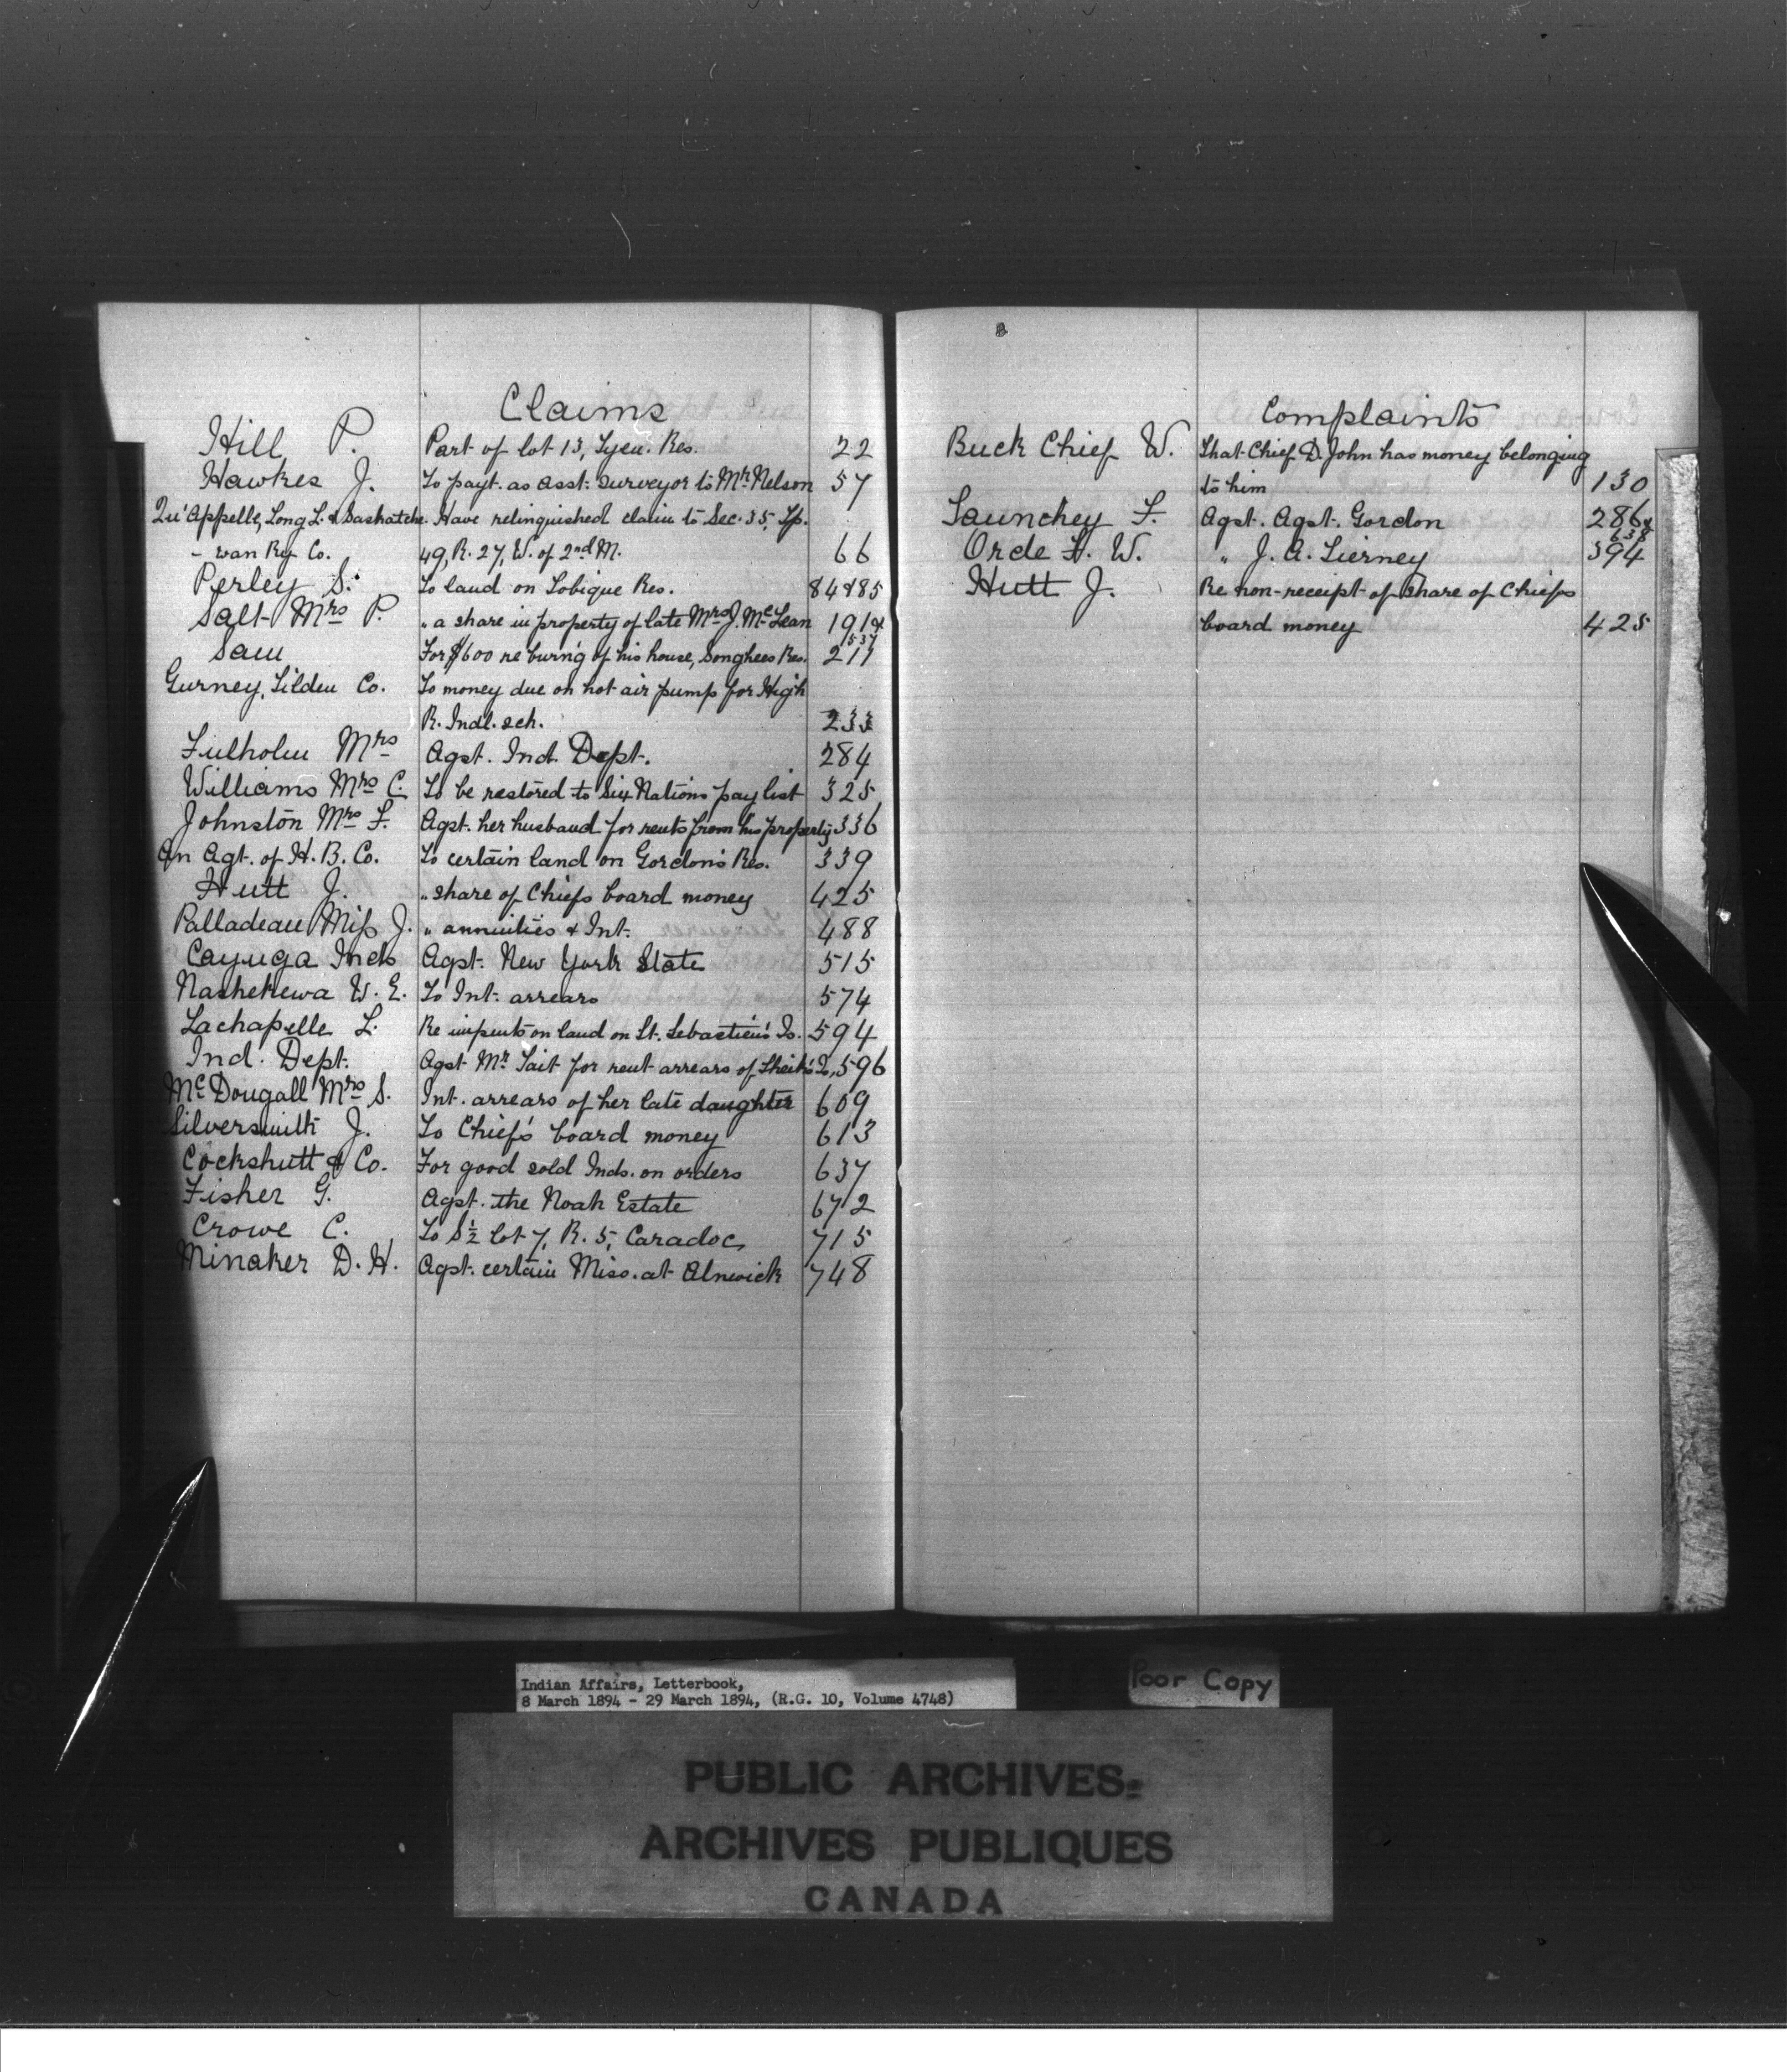 Claims
Hill P. Part of lot 13, Tyen. Res. 22
Hawkes J. To payt. as asst. surveyor to Mr. Nelson 57
Qu'Appelle, Long L. & Saskatche- Have relinquished claim to Sec. 35, Tp.
- wan Ry Co. 49, R. 27, W. of 2nd M. 66
Perley S. To land on Tobique Res. 84 & 85
Salt Mrs P. " a share in property of late Mrs J. McLean 191 &
537
Sam For $600 re burn'g of his house, Songhees Res. 211
Gurney, Tilden Co. To money due on hot air pump for High
R. Indl. sch. 233
Fulholm Mrs Agst. Ind. Dept. 284
Williams Mrs C. To be restored to Six Nations pay list 325
Johnston Mrs F. Agst. her husband for rents from his property 336
An Agt. of H. B. Co. To certain land on Gordon's Res. 339
Hutt J. " share of Chiefs board money 425
Palladeau Miss J. " annuities & Int. 488
Cayuga Inds Agst. New York State 515
Nashekewa W. E. To Int. arrears 574
Lachapelle L. Re impvts on land on St. Sebastien's Is. 594
Ind. Dept. Agst Mr Tait for rent arrears of Sheik's Is. 596
McDougall Mrs S. Int. arrears of her late daughter 609
Silversmith J. To Chief's board money 613
Cockshutt & Co. For good sold Inds. on orders 637
Fisher G. Agst. the Noah Estate 672
Crowe C. To S½ lot 7, R. 5, Caradoc, 715
Minaker D. H. Agst. certain Miss. at Alnwick 748
Complaints
Buck Chief W. That Chief D. John has money belonging
to him 130
Saunchey F. Agst. Agt. Gordon 286 &
638
Orde H. W. " J. A. Tierney 394
Hutt J. Re non-receipt of share of Chiefs
board money 425
Indian Affairs, Letterbook,
8 March 1894 - 29 March 1894, (R.G. 10, Volume 4748)
Poor Copy
PUBLIC ARCHIVES
ARCHIVES PUBLIQUES
CANADA